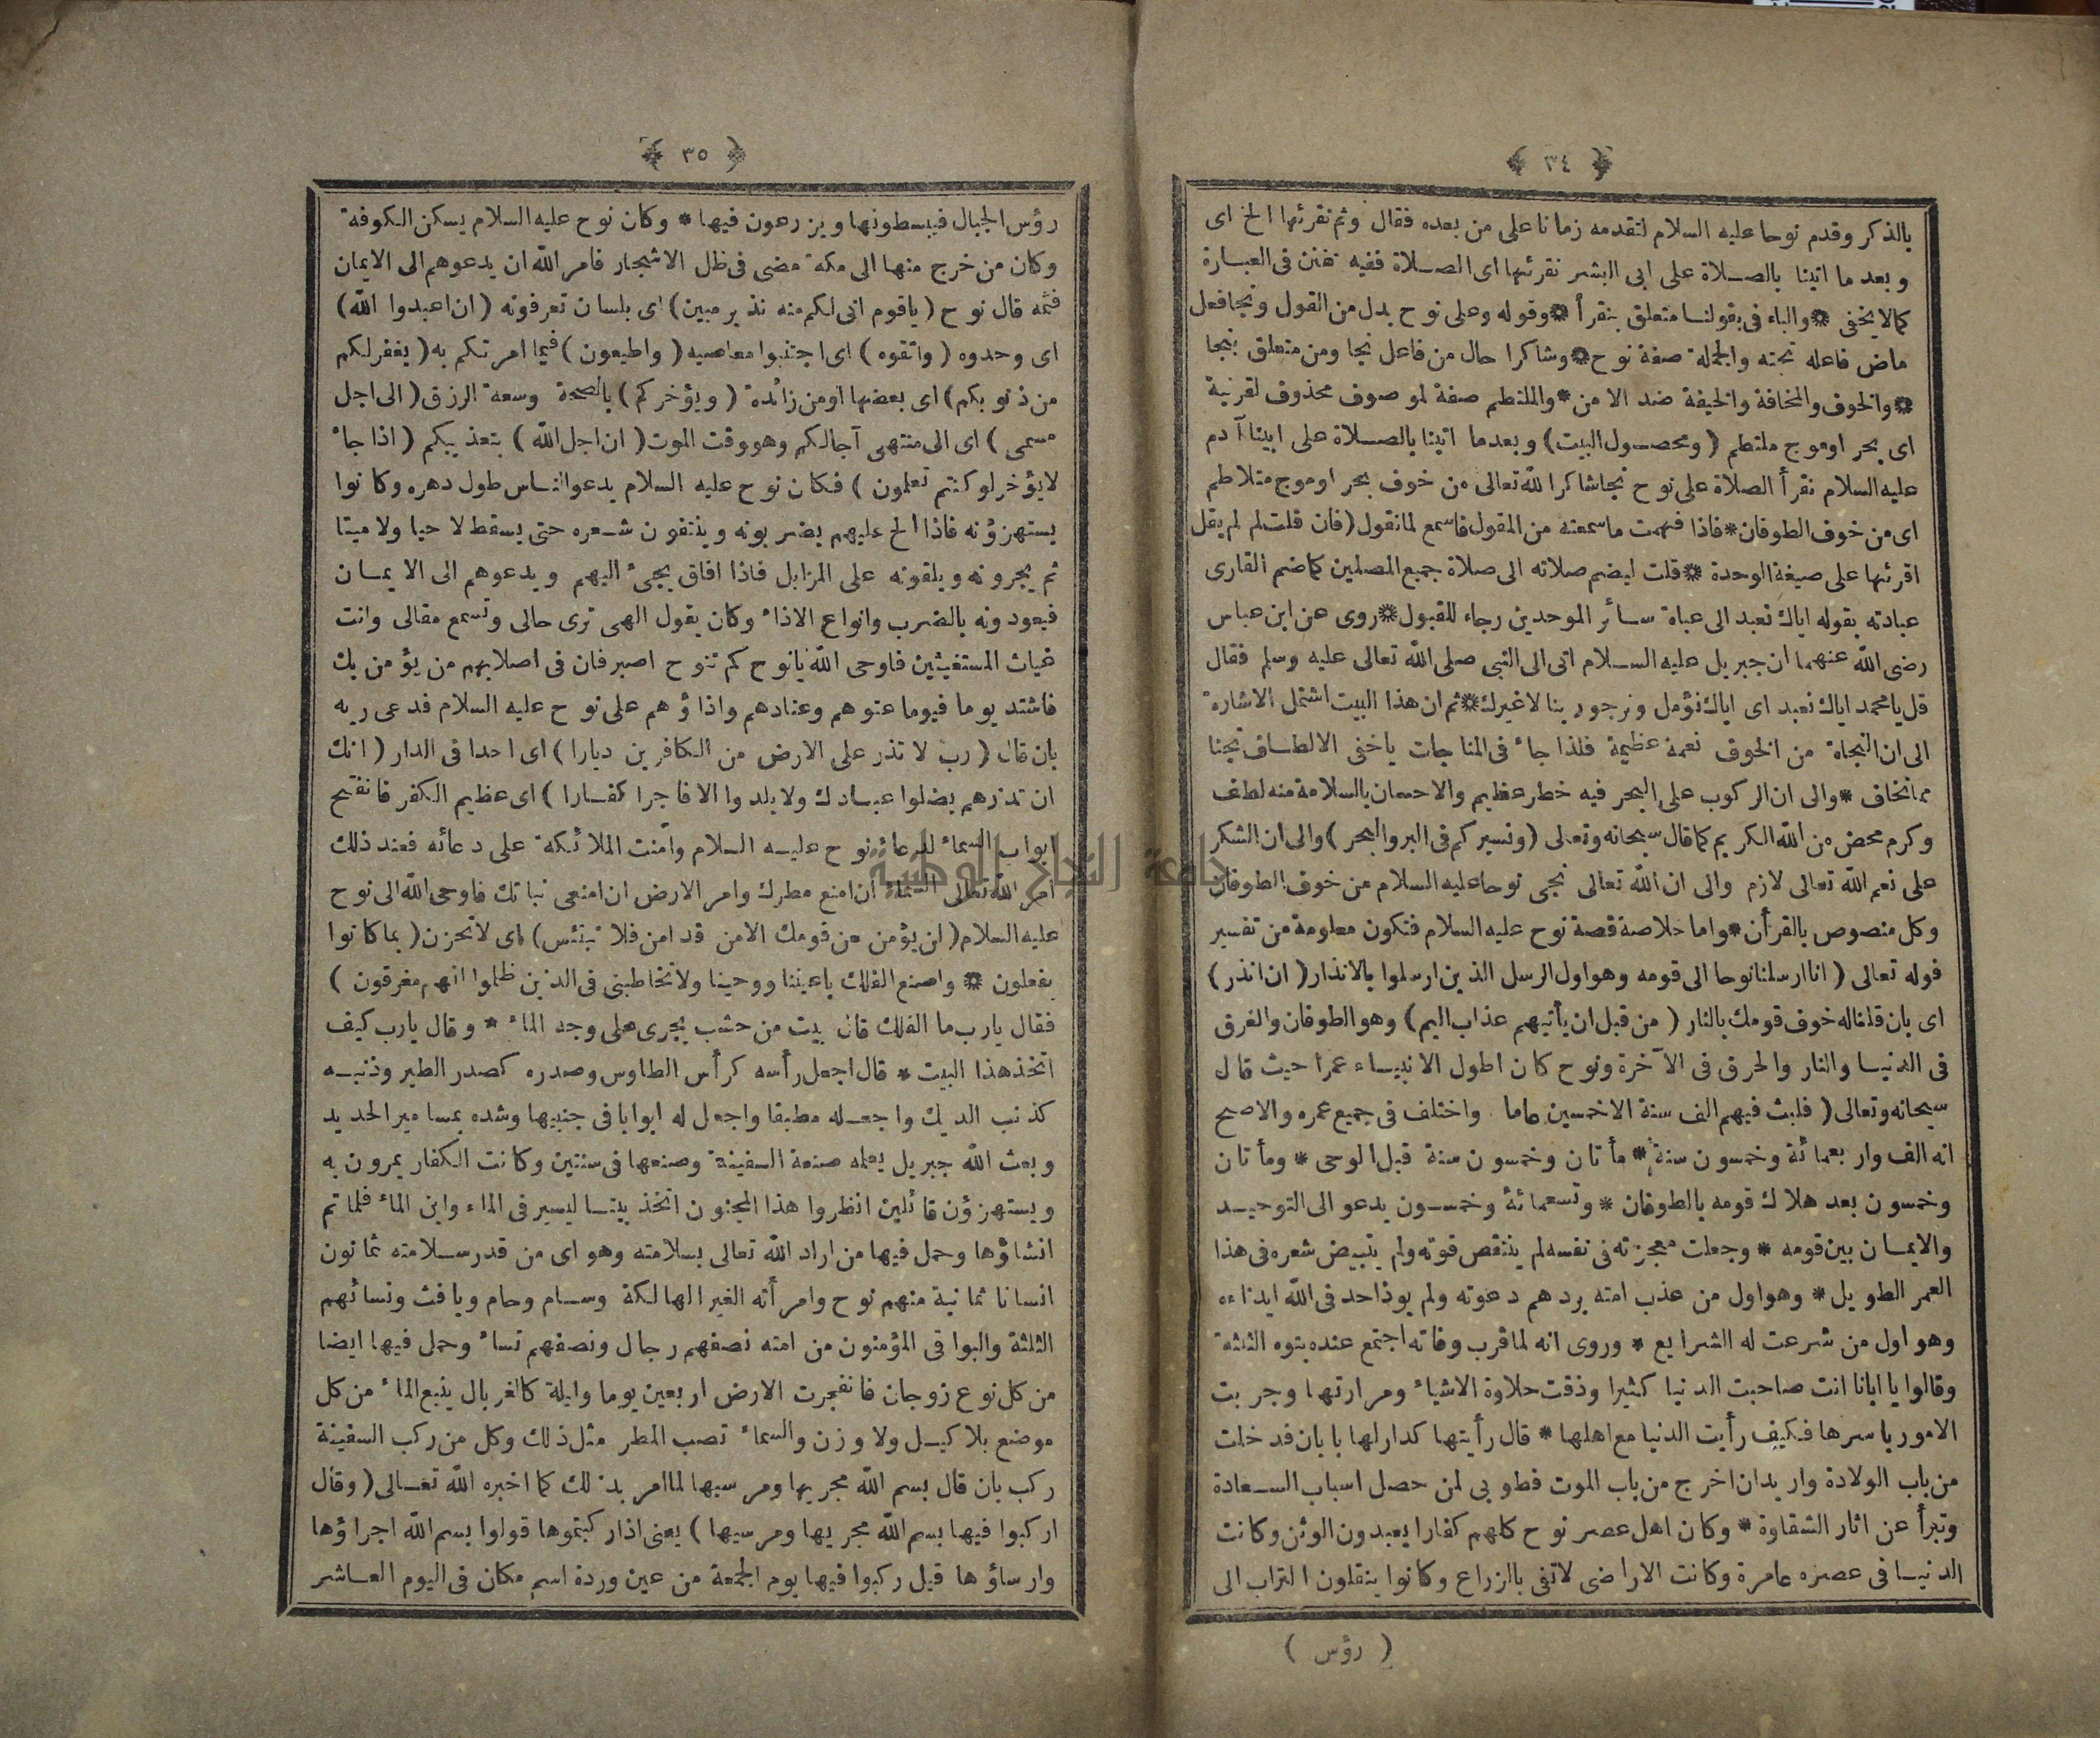 ﴿ ٣٤ ﴾
بالذكر وقدم نوحا عليه السلام لتقدمه زمانا على من بعده فقال وثم نقرئها الخ اى
وبعد ما اتينا بالصلاة على ابى البشر نقرئها اى الصلاة ففيه تفنن فى العبارة
كمالا يخفى * والباء فى بقولنا متعلق بنقرأ * وقوله وعلى نوح بدل من القول ونجا فعل
ماض فاعله تحته والجملة صفة نوح * وشاكرا حال من فاعل نجا ومن متعلق بنجا
* والخوف والمخافة والخيفة ضد الامن * والملتطم صفة لموصوف محذوف لقرنية
اى بحر اوموج ملتطم ( ومحصول البيت ) وبعدما اتينا بالصلاة على ابينا آدم
عليه السلام نقرأ الصلاة على نوح نجا شاكرا لله تعالى من خوف بحر اوموج متلاطم
اى من خوف الطوفان * فاذا فهمت ماسمعته من المقول فاسمع لمانقول ( فان قلت لم لم يقل
اقرئها على صيغة الوحدة * قلت ليضم صلاته الى صلاة جميع المصلين كماضم القارى
عبادته بقوله اياك نعبد الى عباة سائر الموحدين رجاء للقبول * روى عن ابن عباس
رضى الله عنهما ان جبريل عليه السلام اتى الى النبى صلى الله تعالى عليه وسلم فقال
قل يا محمد اياك نعبد اى اياك نؤمل ونرجو ربنا لاغيرك * ثم ان هذا البيت اشتمل الاشارة
الى ان النجاة من الخوف نعمة عظيمة فلذا جاء فى المناجات ياخفى الالطاف نجنا
ممانخاف * والى ان الركوب على البحر فيه خطر عظيم والاحسان بالسلامة منه لطف
وكرم محض من الله الكريم كما قال سبحانه وتعالى ( ونسيركم فى البر والبحر ) والى ان الشكر
على نعم الله تعالى لازم والى ان الله تعالى نجى نوحا عليه السلام من خوف الطوفان
وكل منصوص بالقرأن * واما خلاصة قصة نوح عليه السلام فتكون معلومة من تفسير
قوله تعالى ( انا ارسلنا نوحا الى قومه وهو اول الرسل الذين ارسلوا بالانذار ( ان انذر )
اى بان قلنا له خوف قومك بالنار ( من قبل ان يأتيهم عذاب اليم ) وهو الطوفان والغرق
فى الدنيا والنار والحرق فى الآخرة ونوح كان اطول الانبياء عمرا حيث قال
سبحانه وتعالى ( فلبث فيهم الف سنة الاخمسين عاما واختلف فى جميع عمره والاصح
انه الف واربعمائة وخمسون سنة * مأتان وخمسون سنة قبل الوحى * ومأتان
وخمسون بعد هلاك قومه بالطوفان * وتسعمائة وخمسون يدعو الى التوحيد
والايمان بين قومه * وجعلت معجزته فى نفسه لم ينتقص قوته ولم يتبيض شعره فى هذا
العمر الطويل * وهو اول من عذب امته بردهم دعوته ولم يوذ احد فى الله ايذاءه
وهو اول من شرعت له الشرايع * وروى انه لما قرب وفاته اجتمع عنده بنوه الثلثة
وقالوا يا ابانا انت صاحبت الدنيا كثيرا وذقت حلاوة الاشياء ومرارتها وجربت
الامور باسرها فكيف رأيت الدنيا مع اهلها * قال رأيتها كدار لها بابان فدخلت
من باب الولادة واريد ان اخرج من باب الموت فطوبى لمن حصل اسباب السعادة
وتبرأ عن اثار الشقاوة * وكان اهل عصر نوح كلهم كفارا يعبدون الوثن وكانت
الدنيا فى عصره عامرة وكانت الاراضى لاتفى بالزراع وكانوا ينقلون التراب الى
( رؤس )
﴿ ٣٥ ﴾
رؤس الجبال فيبسطونها ويزرعون فيها * وكان نوح عليه السلام يسكن الكوفة
وكان من خرج منها الى مكة مضى فى ظل الاشجار فامر الله ان يدعوهم الى الايمان
فثمه قال نوح ( ياقوم انى لكم منه نذير مبين ) اى بلسان تعرفونه ( ان اعبدوا الله )
اى وحدوه ( واتقوه ) اى اجتنبوا معاصيه ( واطيعون ) فيما امرتكم به ( يغفر لكم
من ذنوبكم ) اى بعضها اومن زائدة ( ويؤخركم ) بالصحة وسعة الرزق ( الى اجل
مسمى ) اى الى منتهى آجالكم وهو وقت الموت ( ان اجل الله ) بتعذيبكم ( اذا جاء
لايؤخر لوكنتم تعلمون ) فكان نوح عليه السلام يدعو الناس طول دهره وكانوا
يستهزؤنه فاذا الح عليهم يضربونه وينتفون شعره حتى يسقط لا حيا ولا ميتا
ثم يجرونه ويلقونه على المزابل فاذا افاق يجىء اليهم ويدعوهم الى الايمان
فيعودونه بالضرب وانواع الاذاء وكان يقول الهى ترى حالى وتسمع مقالى وانت
غياث المستغيثين فاوحى الله يانوح كم تنوح اصبر فان فى اصلابهم من يؤمن بك
فاشتد يوما فيوما عتوهم وعنادهم واذاؤهم على نوح عليه السلام فدعى ربه
بان قال ( رب لا تذر على الارض من الكافرين ديارا ) اى احدا فى الدار ( انك
ان تذرهم يضلوا عبادك ولا يلدوا الا فاجرا كفارا ) اى عظيم الكفر فانفتح
ابواب السماء لدعاء نوح عليه السلام وآمنت الملائكة على دعائه فعند ذلك
امر الله تعالى السماء ان امنع مطرك وامر الارض ان امنعى نباتك فاوحى الله الى نوح
عليه السلام ( لن يؤمن من قومك الا من قد امن فلا تبتئس ) اى لاتحزن ( بما كانوا
يفعلون * واصنع الفلك باعيننا ووحينا ولا تخاطبنى فى الذين ظلموا انهم مغرقون )
فقال يارب ما الفلك قال بيت من خشب يجرى على وجه الماء * وقال يارب كيف
اتخذ هذا البيت * قال اجعل رأسه كرأس الطاوس وصدره كصدر الطير وذنبه
كذنب الديك واجعله مطبقا واجعل له ابوابا فى جنبيها وشده بمسامير الحديد
وبعث الله جبريل يعلمه صنعة السفينة وصنعها فى سنتين وكانت الكفار يمرون به
ويستهزؤن قائلين انظروا هذا المجنون اتخذ بيتا ليسير فى الماء واين الماء فلما تم
انشاؤها وحمل فيها من اراد الله تعالى بسلامته وهو اى من قدر سلامته ثمانون
انسانا ثمانية منهم نوح وامرأته الغير الهالكة وسام وحام ويافث ونسائهم
الثلثة والبواقى المؤمنون من امته نصفهم رجال ونصفهم نساء وحمل فيها ايضا
من كل نوع زوجان فانفجرت الارض اربعين يوما وليلة كالغربال ينبع الماء من كل
موضع بلاكيل ولا وزن والسماء تصب المطر مثل ذلك وكل من ركب السفينة
ركب بان قال بسم الله مجريها ومرسيها لما امر بذلك كما اخبره الله تعالى ( وقال
اركبوا فيها بسم الله مجريها ومرسيها ) يعنى اذا ركبتموها قولوا بسم الله اجراؤها
وارساؤها قيل ركبوا فيها يوم الجمعة من عين وردة اسم مكان فى اليوم العاشر
جامعة النجاح الوطنية